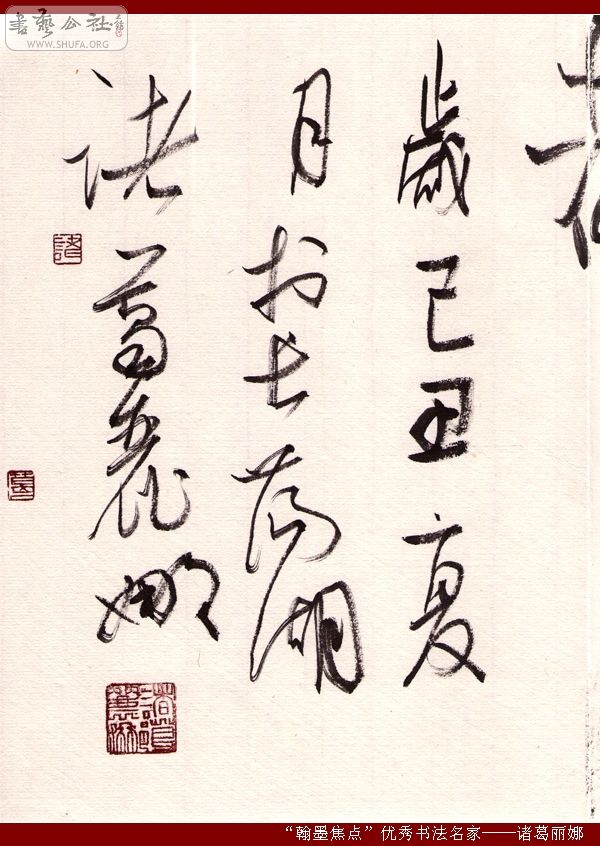 書藝公社
WWW.SHUFA.ORG
歲己丑夏
月於長蕩湖
诸葛丽娜
“翰墨焦点”优秀书法名家——诸葛丽娜